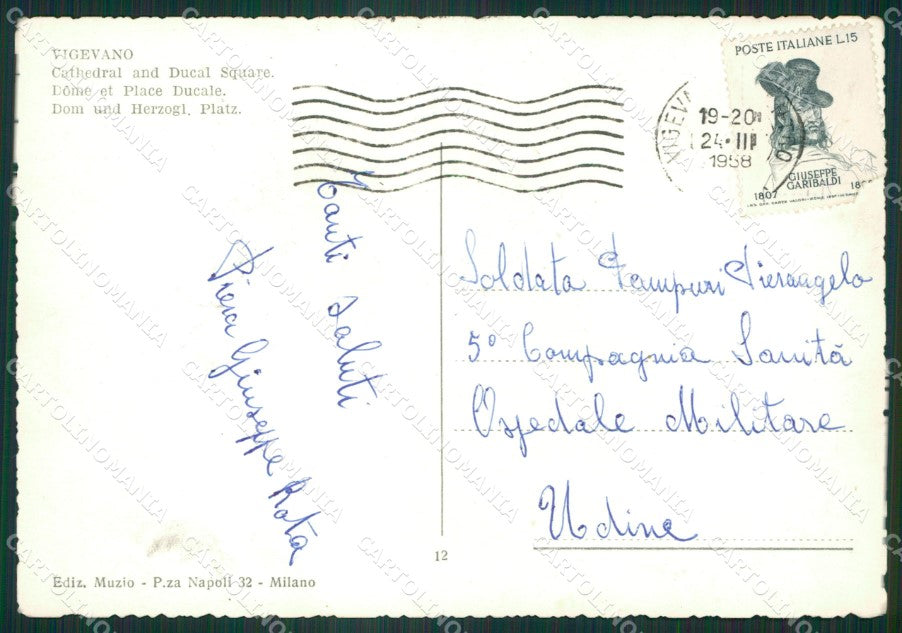 VIGEVANO
Cathedral and Ducal Square.
Dôme et Place Ducale.
Dom und Herzogl. Platz.
POSTE ITALIANE L.15
GIUSEPPE
GARIBALDI
1807
VIGEVA
19-20
24·III
1958
Tanti saluti
Piera Giuseppe Rota
Soldata Pampuri Pierangelo
5° Compagnia Sanità
Ospedale Militare
Udine
12
Ediz. Muzio - P.za Napoli 32 - Milano
CARTOLINOMANIA